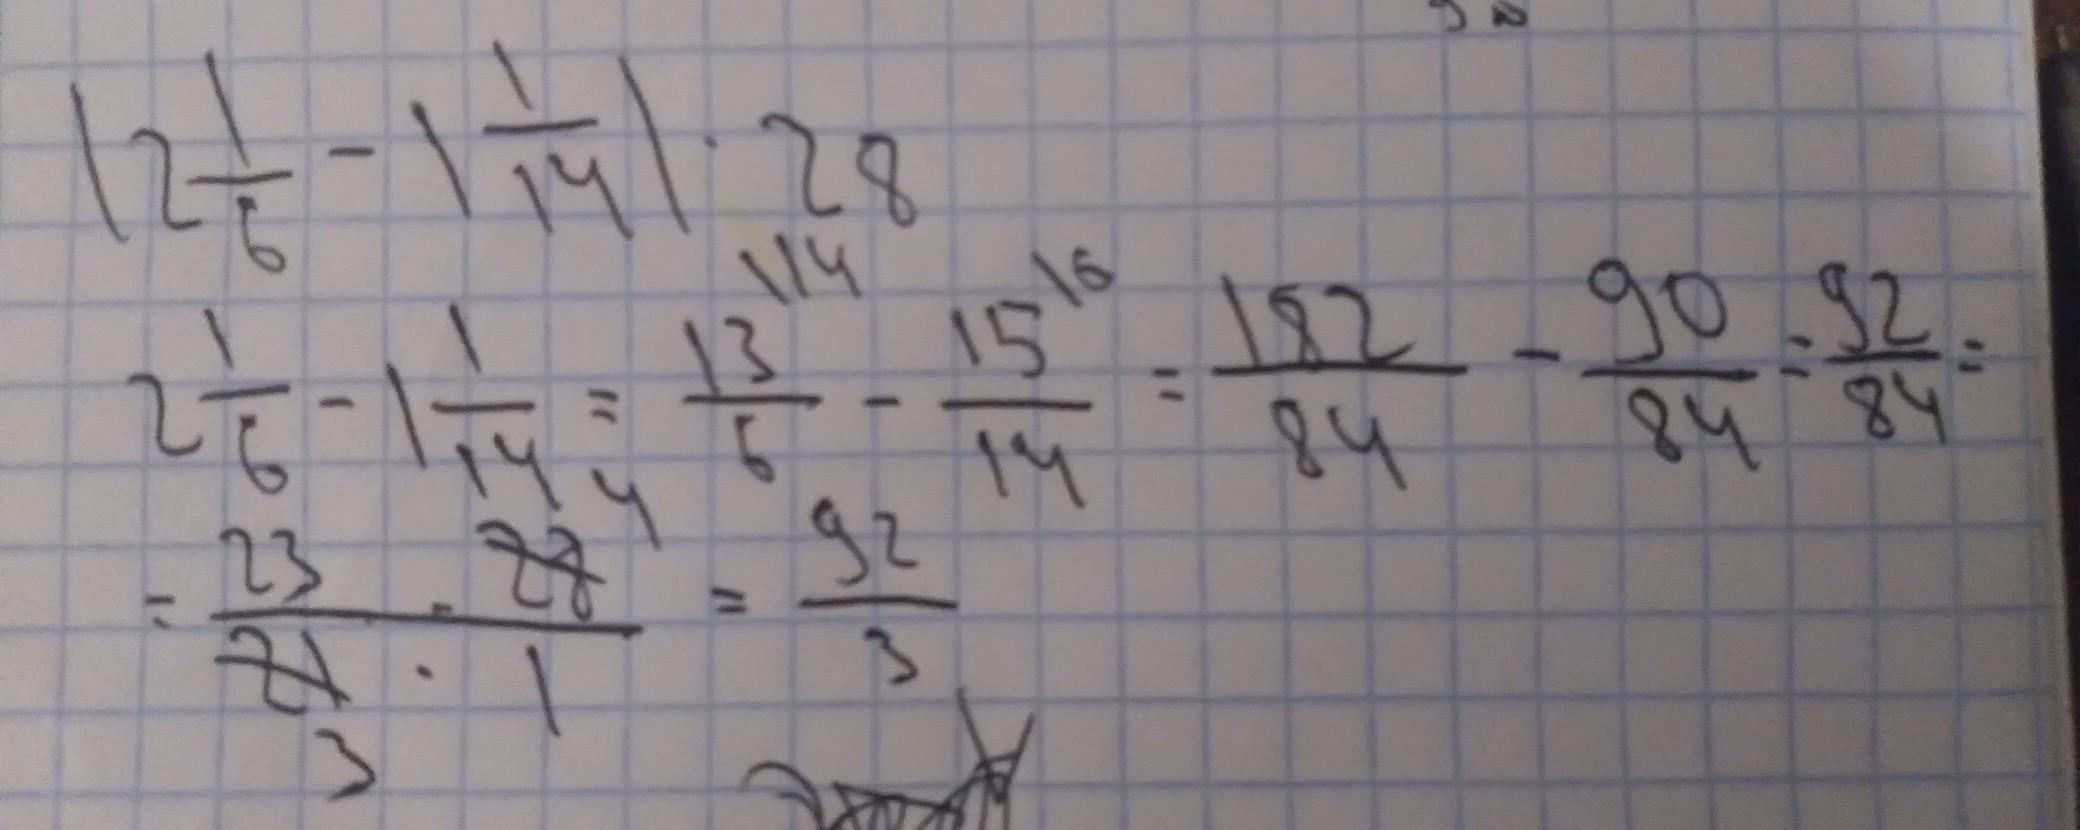 |2 1/6 - 1 1/14| · 28
2 1/6 - 1 1/14 = 13\14/6 - 15\6/14 = 182/84 - 90/84 = 92/84 =
= 23 · 28 4/21 · 1 3 = 92/3